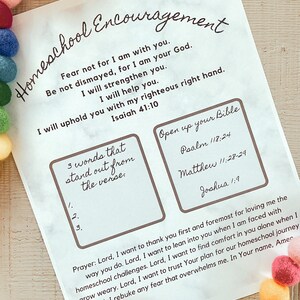 Homeschool Encouragement
Fear not for I am with you.
Be not dismayed, for I am your God.
I will strengthen you.
I will help you.
I will uphold you with my righteous right hand.
Isaiah 41:10
3 words that
stand out from
the verse:
1.
2.
3.
Open up your Bible
Psalm 118:24
Matthew 11:28-29
Joshua 1:9
Prayer: Lord, I want to thank you first and foremost for loving me the
way you do. Lord, I want to lean into you when I am faced with
homeschool challenges. Lord, I want to find comfort in you alone when I
grow weary. Lord, I want to trust Your plan for our homeschool journey
I rebuke any fear that overwhelms me. In Your name, Amen